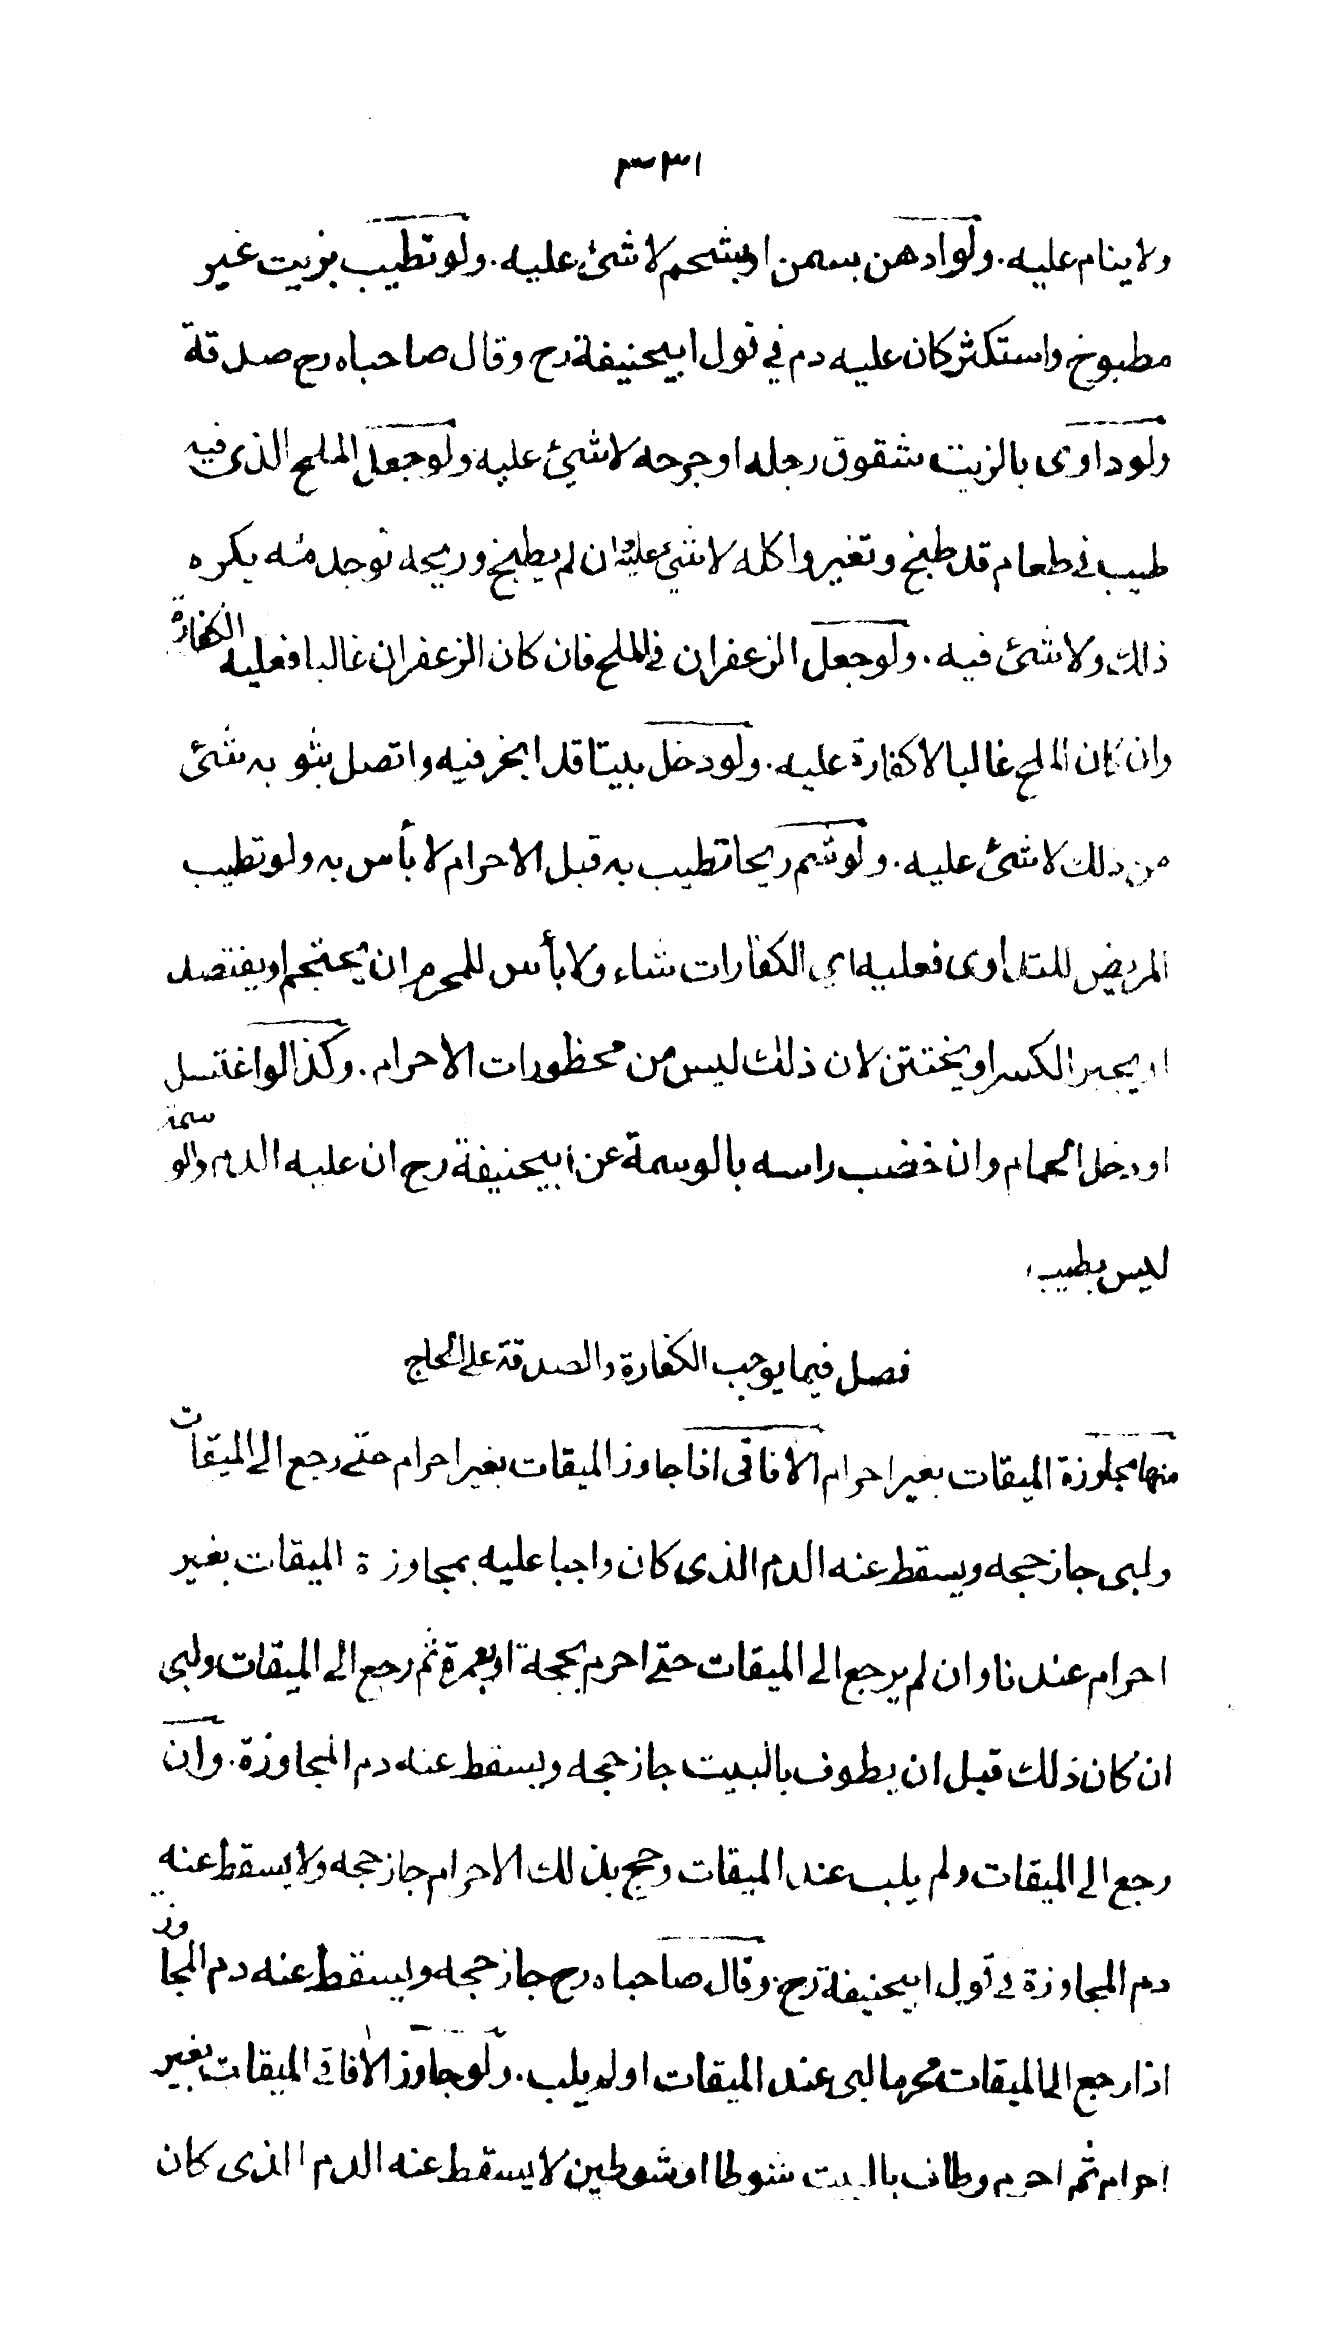 ١٣٣
ولا ينام عليه . ولو ادهن بسمن او بشحم لا شئ عليه . ولو تطيب بزيت غير
مطبوخ واستكثر كان عليه دم في قول ابيحنيفة رح وقال صاحباه رح صدقة
ولو داوى بالزيت شقوق رجله او جرحه لا شئ عليه ولو جعل الملح الذى فيه
طيب في طعام قد طبخ وتغير واكله لا شئ عليه وان لم يطبخ وريحه توجد منه يكره
ذلك ولا شئ فيه . ولو جعل الزعفران في الملح فان كان الزعفران غالبا فعليه الكفارة
وان كان الملح غالبا لا كفارة عليه . ولو دخل بيتا قد ابخر فيه واتصل بثوبه شئ
من ذلك لا شئ عليه . ولو شم ريحا تطيب به قبل الاحرام لا بأس به ولو تطيب
المريض للتداوى فعليه اي الكفارات شاء ولا بأس للمحرم ان يحتجم او يفتصد
او يجبر الكسر او يختتن لان ذلك ليس من محظورات الاحرام . وكذا لو اغتسل
او دخل الحمام وان خضب راسه بالوسمة عن ابيحنيفة رح ان عليه الدم والوسمة
ليس بطيب
فصل فيما يوجب الكفارة والصدقة على الحاج
منها مجاوزة الميقات بغير احرام الآفاقى اذا جاوز الميقات بغير احرام حتى رجع الى الميقات
ولبى جاز حجه ويسقط عنه الدم الذى كان واجبا عليه بمجاوزة الميقات بغير
احرام عندنا وان لم يرجع الى الميقات حتى احرم بحجة او بعمرة ثم رجع الى الميقات ولبى
ان كان ذلك قبل ان يطوف بالبيت جاز حجه ويسقط عنه دم المجاوزة . وان
رجع الى الميقات ولم يلب عند الميقات وحج بذلك الاحرام جاز حجه ولا يسقط عنه
دم المجاوزة في قول ابيحنيفة رح . وقال صاحباه رح جاز حجه ويسقط عنه دم المجاوزة
اذا رجع الى الميقات محرما لبى عند الميقات او لم يلب . ولو جاوز الآفاقي الميقات بغير
احرام ثم احرم وطاف بالبيت شوطا او شوطين لا يسقط عنه الدم الذى كان